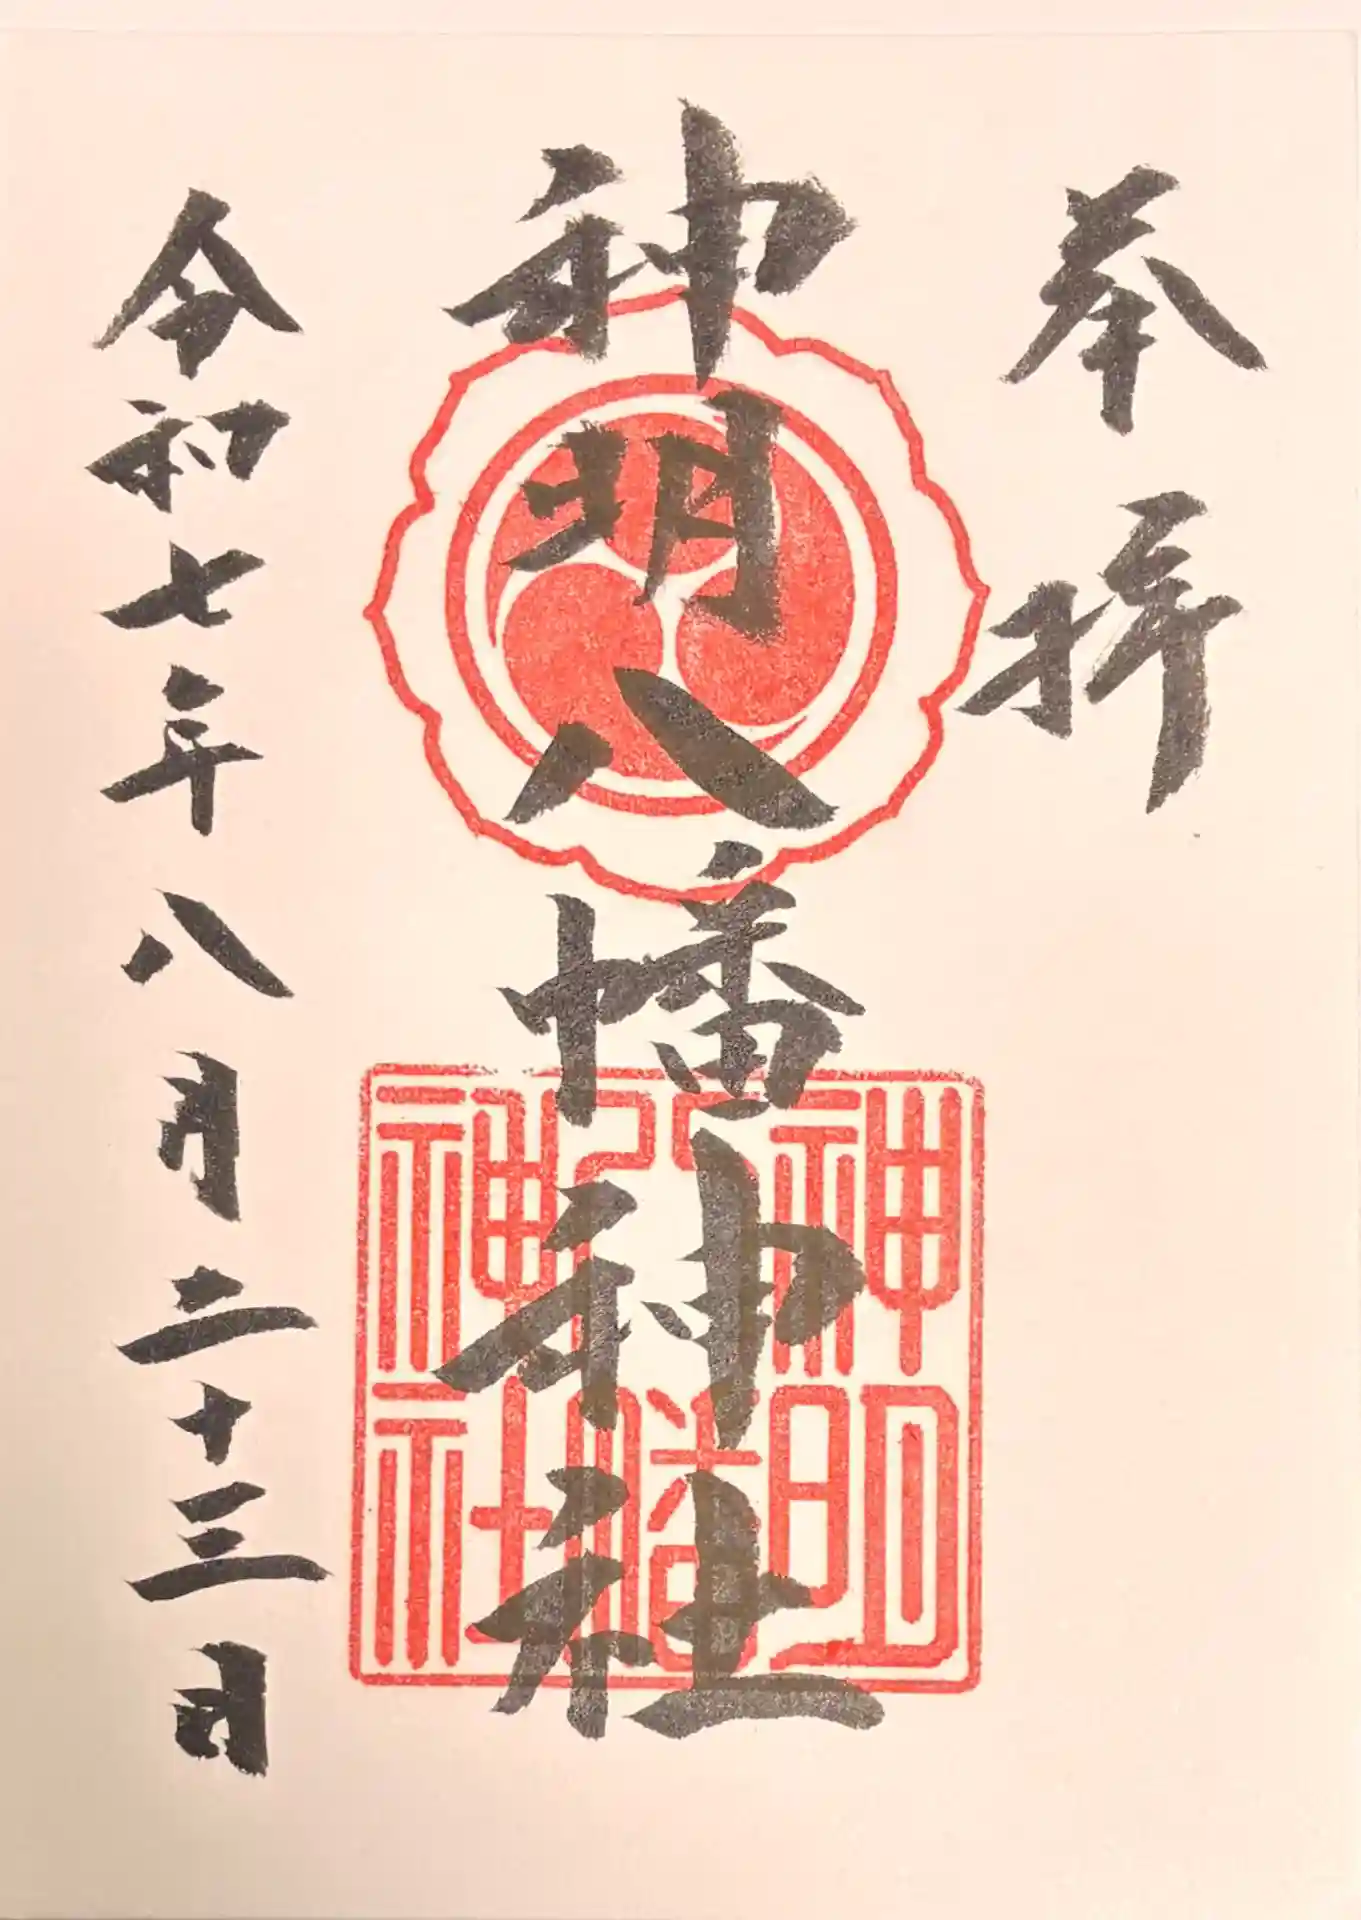 奉拝
神明八幡神社
令和七年八月二十三日
神明八幡神社